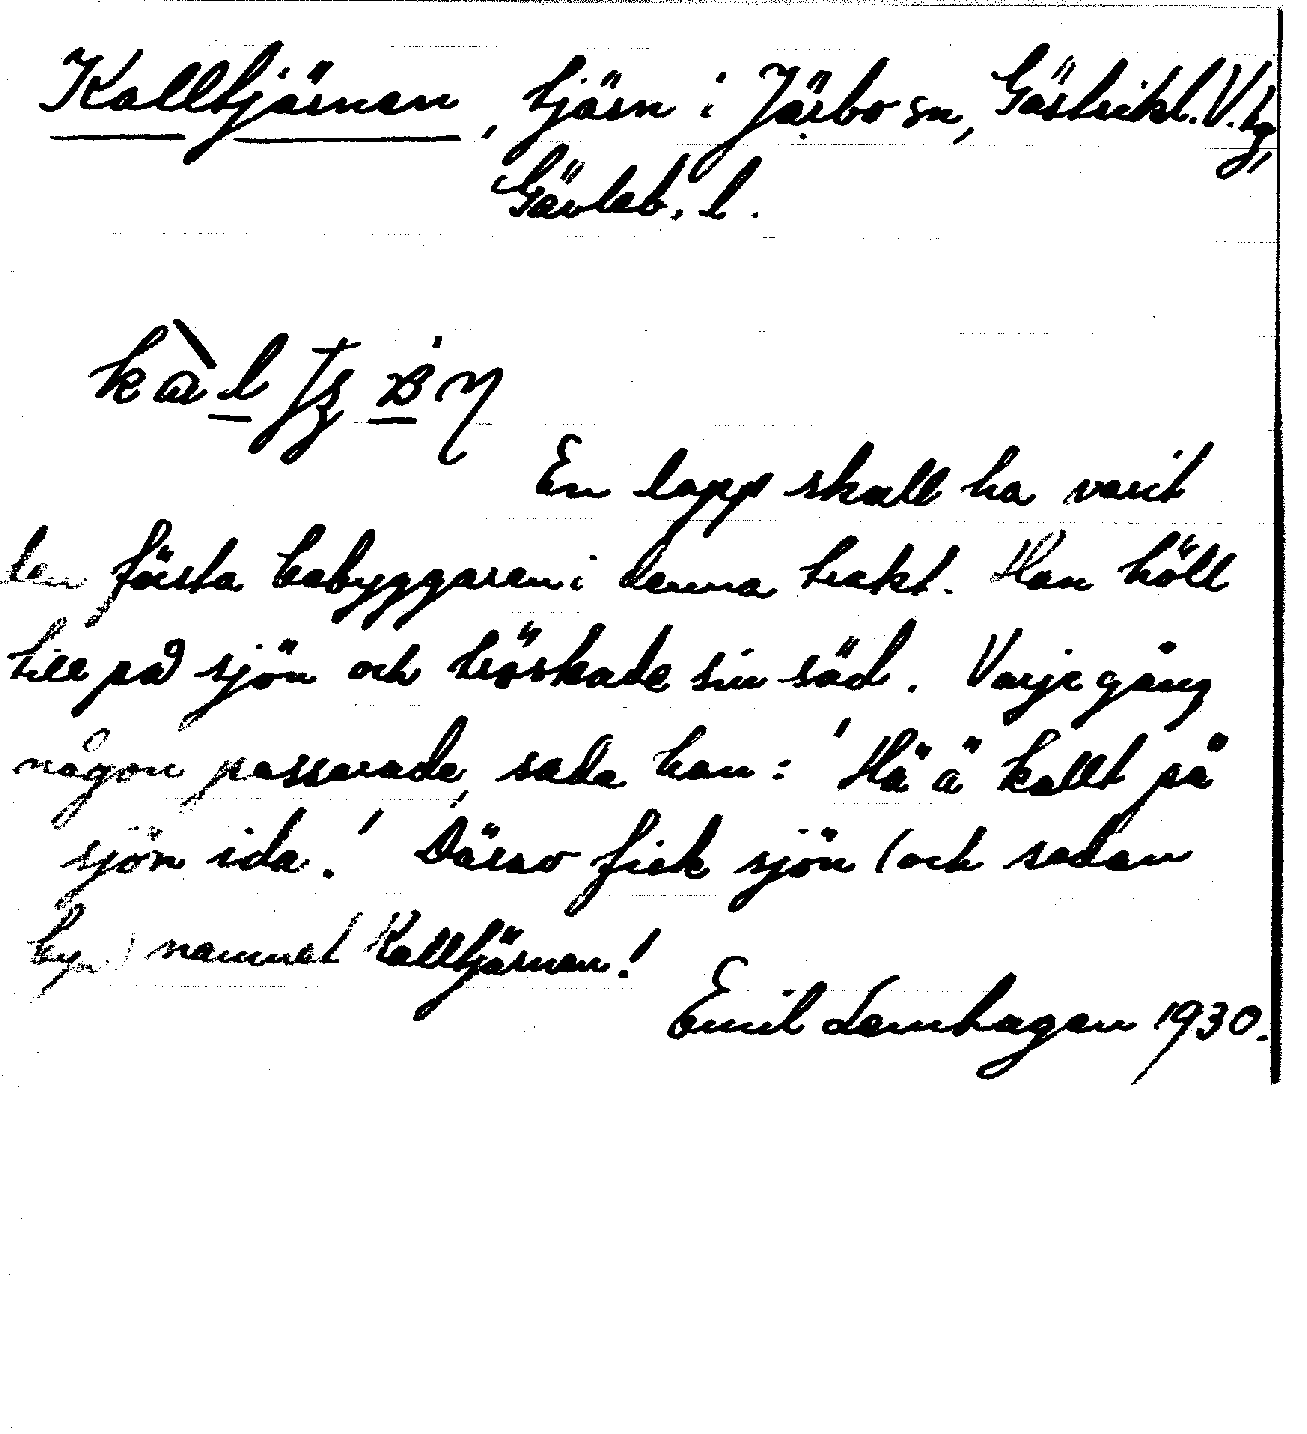 Kalltjärnen, tjärn i Järbo sn, Gästrikl. V. tg,
Gävleb. l.
En lapp skall ha varit
den första bebyggaren i denna trakt. Han höll
till på sjön och tröskade sin säd. Varje gång
någon passerade, sade han: 'Hä ä kallt på
sjön ida.' Därav fick sjön (och sedan
byn) namnet Kalltjärnen!
Emil Lernhagen 1930.